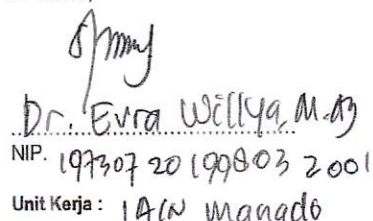 Dr. Evra Willya, M.Ag
NIP. 19730720 199803 2001
Unit Kerja : IAIN Manado